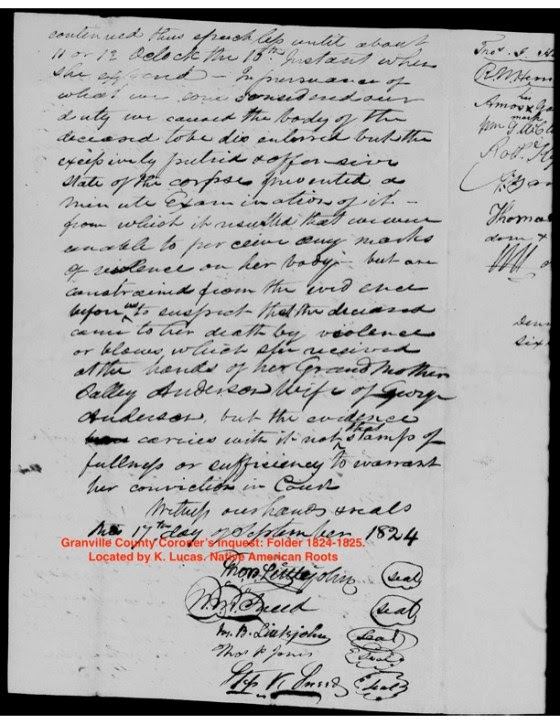 continued thus speechless until about
11 or 12 Oclock the 10th Instant when
She expired — In pursuance of
what we considered our
duty we caused the body of the
deceased to be dis enterred but the
excepively putrid & offen sive
State of the corpse prevented a
minute Examination of it —
from which it resulted that we were
unable to perceive any marks
of violence on her body - but are
constrained from the evidence
before us to suspect that the deceased
came to her death by violence
or blows which she received
at the hands of her Grand Mother
Salley Anderson Wife of George
Anderson, but the evidence
carries with it not that stamp of
fullness or sufficiency to warrant
her conviction in Court
Witness our hands & seals
17th day September 1824
Granville County Coroner's Inquest: Folder 1824-1825.
Located by K. Lucas. Native American Roots
Thos. Littlejohn (seal)
Sneed (seal)
M. B. Littlejohn (seal)
Thos P Jones (Seal)
Step K. Sneed (Seal)
Thos. J.
his
Amos x
mark
Wm
Robt
Thomas